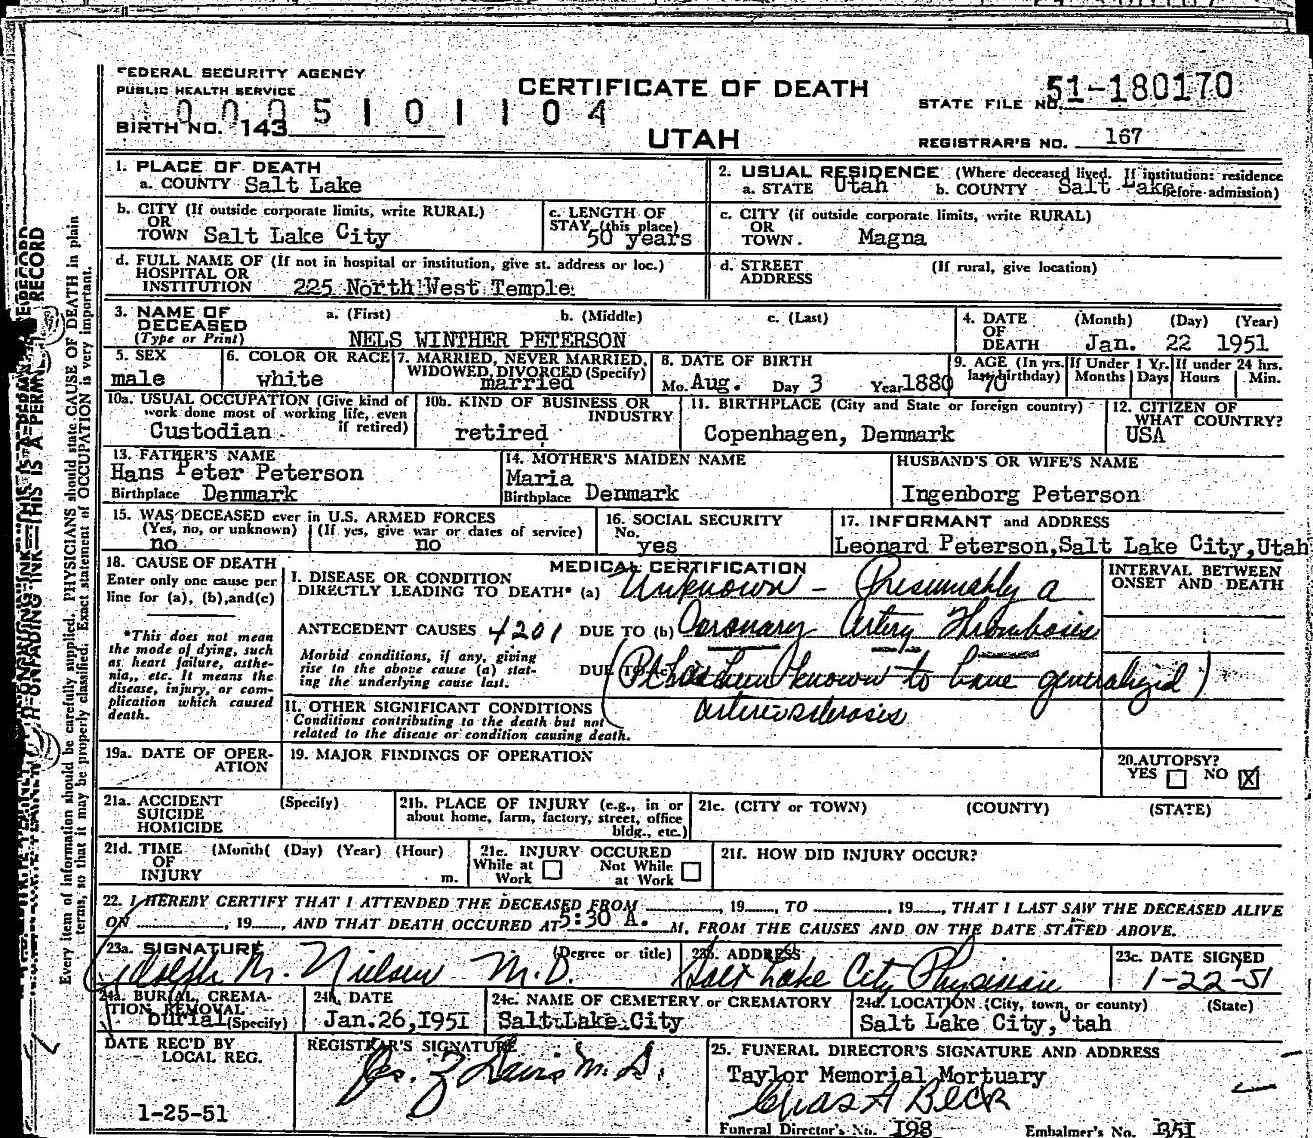 FEDERAL SECURITY AGENCY
PUBLIC HEALTH SERVICE
CERTIFICATE OF DEATH
STATE FILE NO. 51-180170
0 0 0 5 1 0 1 1 0 4
BIRTH NO. 143
UTAH
REGISTRAR'S NO. 167
1. PLACE OF DEATH
a. COUNTY Salt Lake
2. USUAL RESIDENCE (Where deceased lived. If institution: residence before admission)
a. STATE Utah b. COUNTY Salt Lake
b. CITY (If outside corporate limits, write RURAL)
OR
TOWN Salt Lake City
c. LENGTH OF
STAY (this place)
50 years
c. CITY (if outside corporate limits, write RURAL)
OR
TOWN. Magna
d. FULL NAME OF (If not in hospital or institution, give st. address or loc.)
HOSPITAL OR
INSTITUTION 225 North West Temple
d. STREET (If rural, give location)
ADDRESS
3. NAME OF a. (First) b. (Middle) c. (Last)
DECEASED
(Type or Print) NELS WINTHER PETERSON
4. DATE (Month) (Day) (Year)
OF
DEATH Jan. 22 1951
5. SEX
male
6. COLOR OR RACE
white
7. MARRIED, NEVER MARRIED,
WIDOWED, DIVORCED (Specify)
married
8. DATE OF BIRTH
Mo. Aug. Day 3 Year 1880
9. AGE (In yrs. last birthday)
70
If Under 1 Yr.
Months Days
If under 24 hrs.
Hours Min.
10a. USUAL OCCUPATION (Give kind of
work done most of working life, even
if retired)
Custodian
10b. KIND OF BUSINESS OR
INDUSTRY
retired
11. BIRTHPLACE (City and State or foreign country)
Copenhagen, Denmark
12. CITIZEN OF
WHAT COUNTRY?
USA
13. FATHER'S NAME
Hans Peter Peterson
Birthplace Denmark
14. MOTHER'S MAIDEN NAME
Maria
Birthplace Denmark
HUSBAND'S OR WIFE'S NAME
Ingenborg Peterson
15. WAS DECEASED ever in U.S. ARMED FORCES
(Yes, no, or unknown) (If yes, give war or dates of service)
no no
16. SOCIAL SECURITY
No.
yes
17. INFORMANT and ADDRESS
Leonard Peterson, Salt Lake City, Utah
18. CAUSE OF DEATH
Enter only one cause per
line for (a), (b), and (c)
*This does not mean
the mode of dying, such
as heart failure, asthe-
nia,, etc. It means the
disease, injury, or com-
plication which caused
death.
MEDICAL CERTIFICATION
I. DISEASE OR CONDITION
DIRECTLY LEADING TO DEATH* (a) Unknown - Presumably a
ANTECEDENT CAUSES 4201 DUE TO (b) Coronary Artery Thrombosis
Morbid conditions, if any, giving
rise to the above cause (a) stat-
ing the underlying cause last.
DUE TO (c) (Pt has been known to have generalized)
arteriosclerosis
II. OTHER SIGNIFICANT CONDITIONS
Conditions contributing to the death but not
related to the disease or condition causing death.
INTERVAL BETWEEN
ONSET AND DEATH
19a. DATE OF OPER-
ATION
19. MAJOR FINDINGS OF OPERATION
20. AUTOPSY?
YES NO X
21a. ACCIDENT (Specify)
SUICIDE
HOMICIDE
21b. PLACE OF INJURY (e.g., in or
about home, farm, factory, street, office
bldg., etc.)
21c. (CITY or TOWN) (COUNTY) (STATE)
21d. TIME (Month( (Day) (Year) (Hour)
OF
INJURY m.
21e. INJURY OCCURED
While at Work Not While at Work
21f. HOW DID INJURY OCCUR?
22. I HEREBY CERTIFY THAT I ATTENDED THE DECEASED FROM , 19 , TO , 19 , THAT I LAST SAW THE DECEASED ALIVE
ON , 19 , AND THAT DEATH OCCURED AT 5:30 A. M. FROM THE CAUSES AND ON THE DATE STATED ABOVE.
23a. SIGNATURE (Degree or title)
Adolph M. Nielsen M.D.
23b. ADDRESS
Salt Lake City Physician
23c. DATE SIGNED
1-22-51
24a. BURIAL, CREMA-
TION, REMOVAL
burial (Specify)
24b. DATE
Jan.26,1951
24c. NAME OF CEMETERY or CREMATORY
Salt Lake City
24d. LOCATION (City, town, or county) (State)
Salt Lake City, Utah
DATE REC'D BY
LOCAL REG.
1-25-51
REGISTRAR'S SIGNATURE
25. FUNERAL DIRECTOR'S SIGNATURE AND ADDRESS
Taylor Memorial Mortuary
Chas A Beck
Funeral Director's No. 198 Embalmer's No. B51
Every item of information should be carefully supplied. PHYSICIANS should state CAUSE OF DEATH in plain
terms, so that it may be properly classified. Exact statement of OCCUPATION is very important.
UNFADING INK—(THIS IS A PERMANENT RECORD